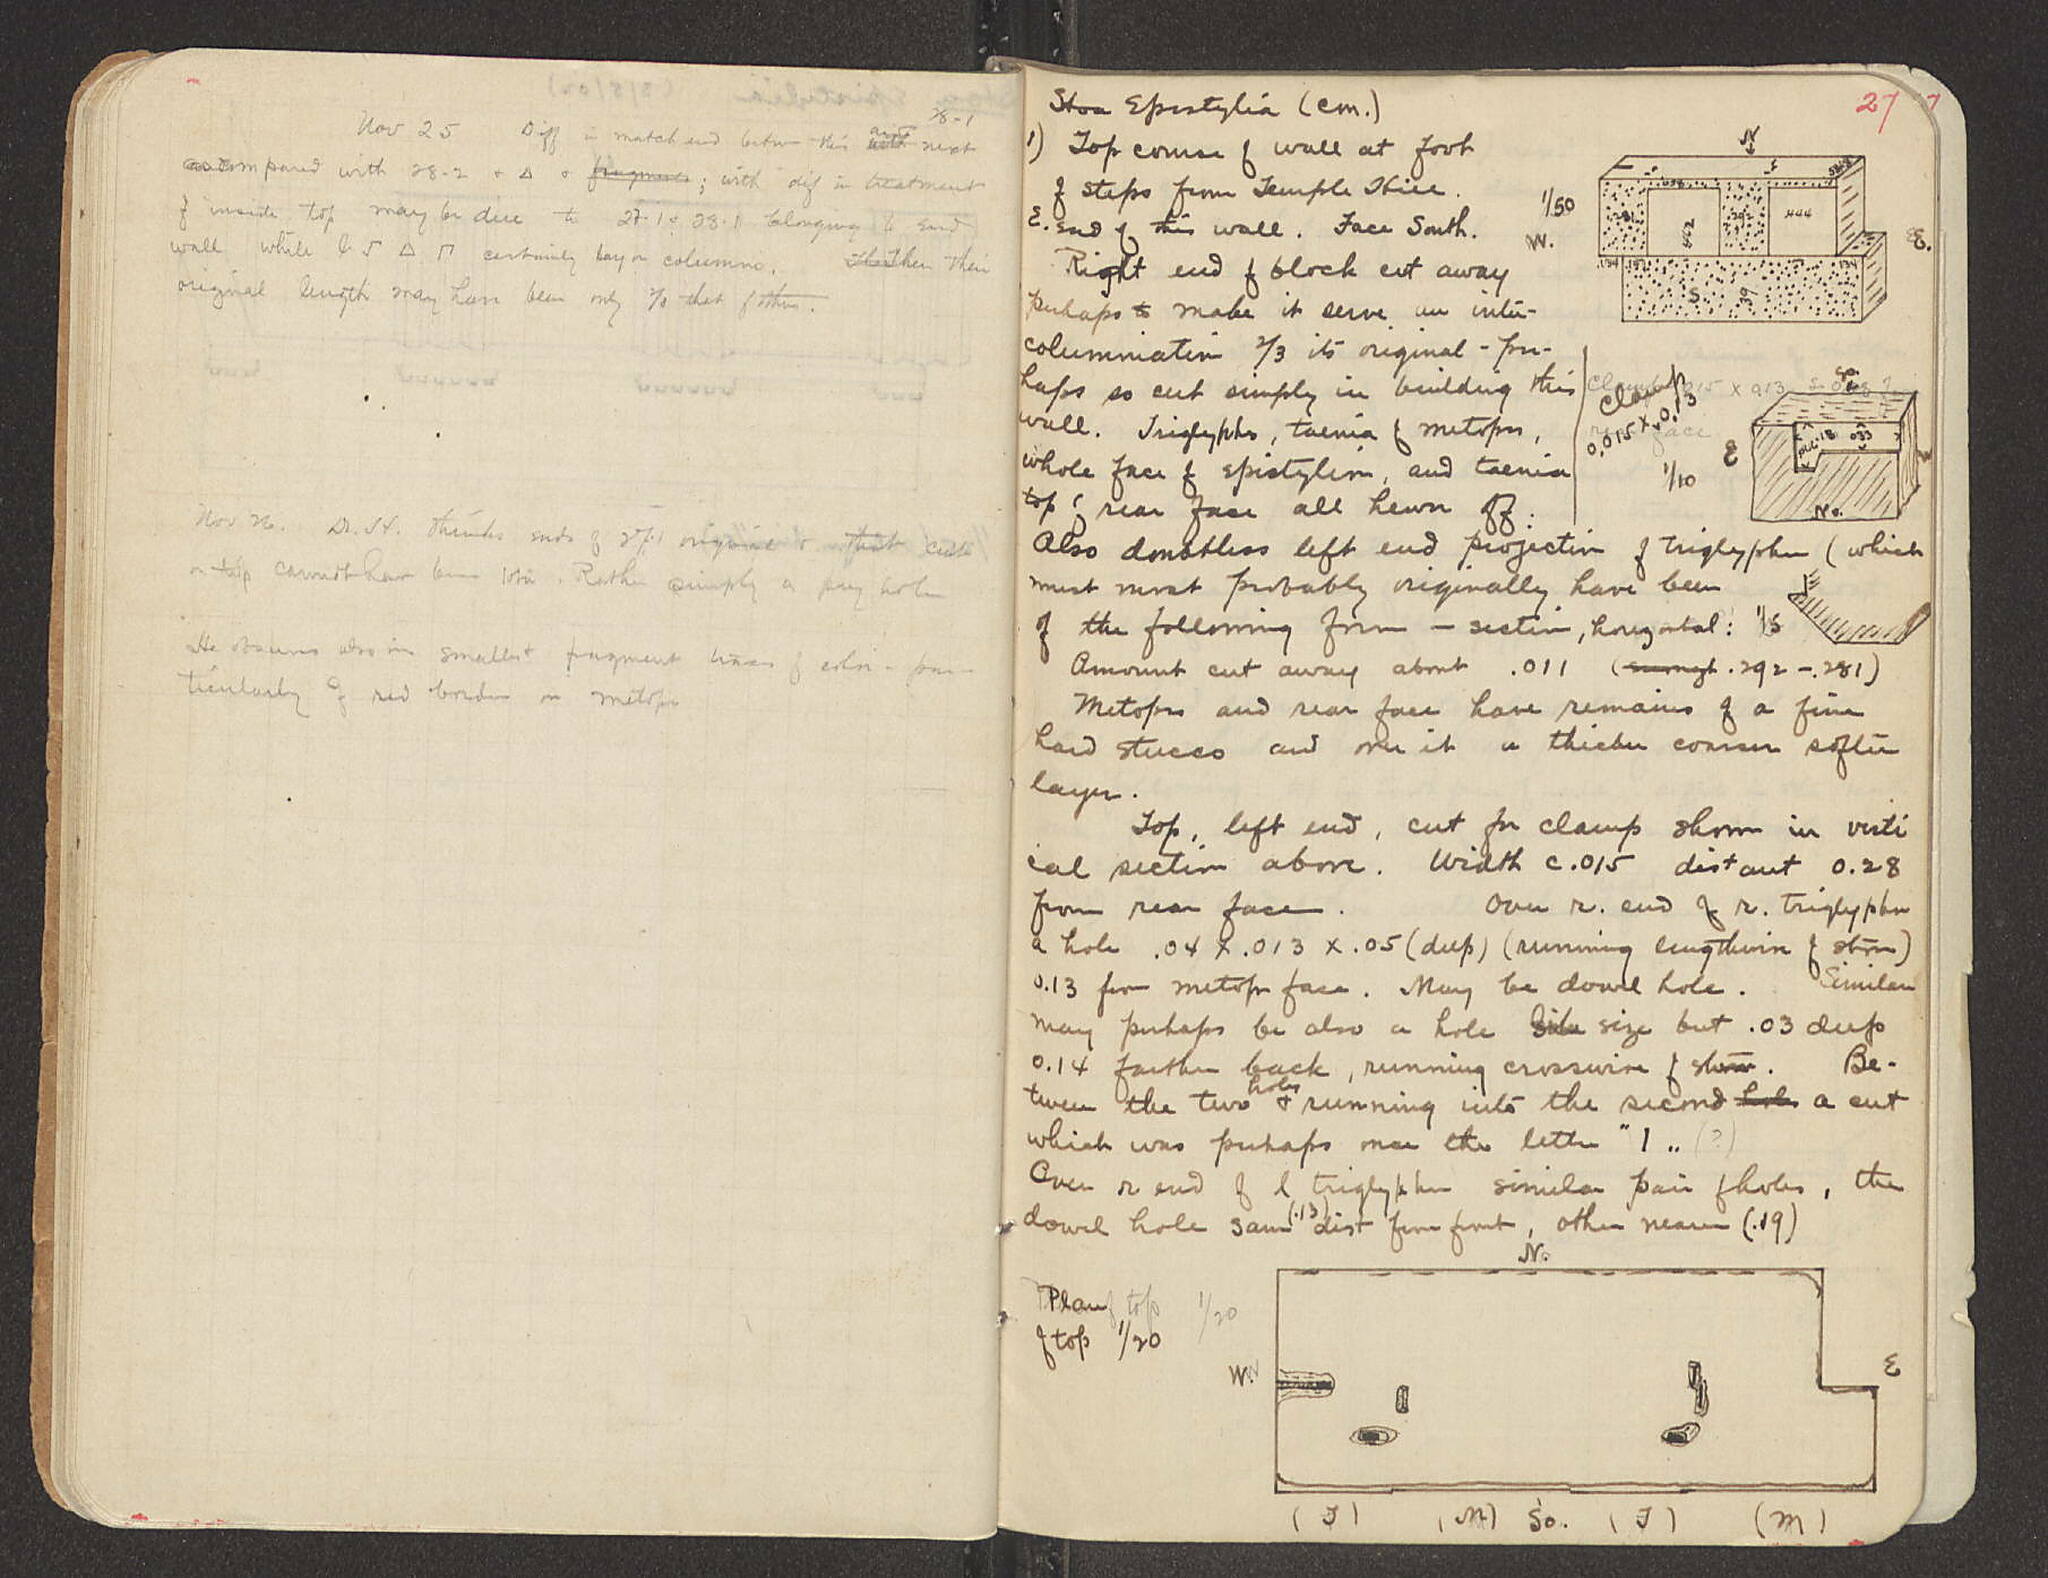 28-1
Nov 25 Diff in match end between this and with next
as compared with 28-2 + Δ + fragments; with dif in treatment
of inside top may be due to 27.1 & 28.1 belonging to end
wall while Δ Π certainly lay on columns. Then their
original length may have been only 2/3 that of this.
Nov 26. Dr. H. thinks ends of 27.1 original & that cuts
on top cannot have been iota. Rather simply a pry hole
He observes also in smallest fragment traces of color - par-
ticularly of red border on metope
27
Stoa Epistylia (cm.)
1) Top course of wall at foot
of steps from Temple Hill.
E. end of this wall. Face South.
Right end of block cut away
perhaps to make it serve an inter-
columniation 2/3 its original - per-
haps so cut simply in building this
wall. Triglyphs, taenia of metopes,
whole face of epistylion, and taenia
top of rear face all hewn off.
Also doubtless left end projection of triglyphon (which
must most probably originally have been
of the following form - section, horizontal: 1/5
Amount cut away about .011 ( .292 - .281)
Metopes and rear face have remains of a fine
hard stucco and over it a thicker coarser softer
layer.
Top, left end, cut for clamp shown in verti
cal section above. Width c.015 distant 0.28
from rear face. Over r. end of r. triglyphon
a hole .04 X .013 X .05 (deep) (running lengthwise of stone)
0.13 from metope face. May be dowel hole. Similar
may perhaps be also a hole size but .03 deep
0.14 farther back, running crosswise of stone. Be-
tween the two holes & running into the second hole a cut
which was perhaps once the letter "I" (?)
Over r end of l triglyphon similar pair of holes, the
dowel hole same (.13) dist from front, other nearer (.19)
N.
1/50
W.
E.
.281
.292
.444
.134
S
.39
.134
Clamp
0.015 X 0.13
1/10
E
.18
.033
No.
N.
Plan of top 1/20
of top 1/20
W.
E
(T) (M) So. (T) (M)